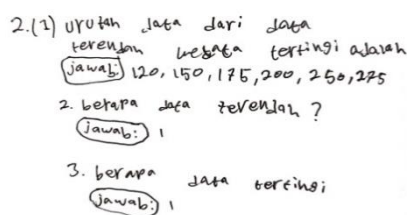 2.(1) urutan data dari data
terendah kedata tertingi adalah
jawab: 120, 150, 175, 200, 250, 275
2. berapa data terendah ?
jawab: 1
3. berapa data tertingi
jawab: 1